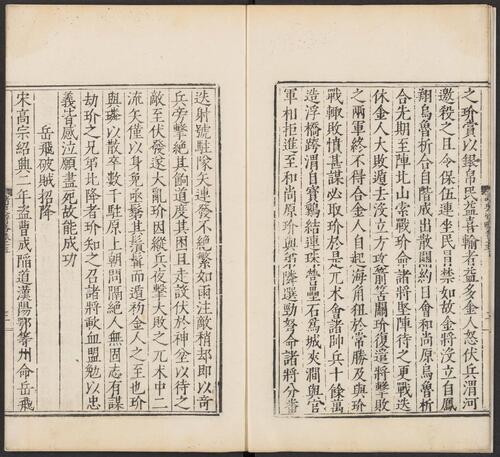 之玠賞以銀帛民益喜輸者益多金人怒伏兵渭河
邀殺之且令保伍連坐民冒禁如故金將沒立自鳳
翔烏魯折合自階成出散關約日會和尚原烏魯折
合先期至陣北山索戰玠命諸將堅陣待之更戰迭
休金人大敗遁去沒立方攻箭筈關玠復遣將擊敗
之兩軍終不得合金人自起海角狃於常勝及與玠
戰輒敗憤甚謀必取玠於是兀朮會諸帥兵十餘萬
造浮橋跨渭自寶雞結連珠營壘石為城夾澗與官
軍相拒進至和尚原玠與弟璘選勁弩命諸將分番
迭射號駐隊矢連發不絕繁如雨注敵稍却即以奇
兵旁擊絕其餉道度其困且走設伏於神坌以待之
敵至伏發遂大亂玠因縱兵夜擊大敗之兀朮中二
流矢僅以身免亟剃其鬚髯而遁初金人之至也玠
與璘以散卒數千駐原上朝問隔絕人無固志有謀
劫玠之兄弟北降者玠知之召諸將歃血盟勉以忠
義皆感泣願盡死故能成功
岳飛破賊招降
宋高宗紹興二年盜曹成陷道漢陽鄂等州命岳飛